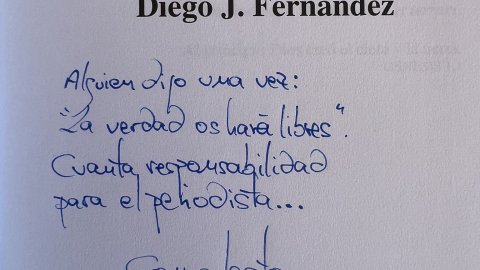 Diego J. Fernández
Alguien dijo una vez:
"La verdad os hará libres".
Cuanta responsabilidad
para el periodista...